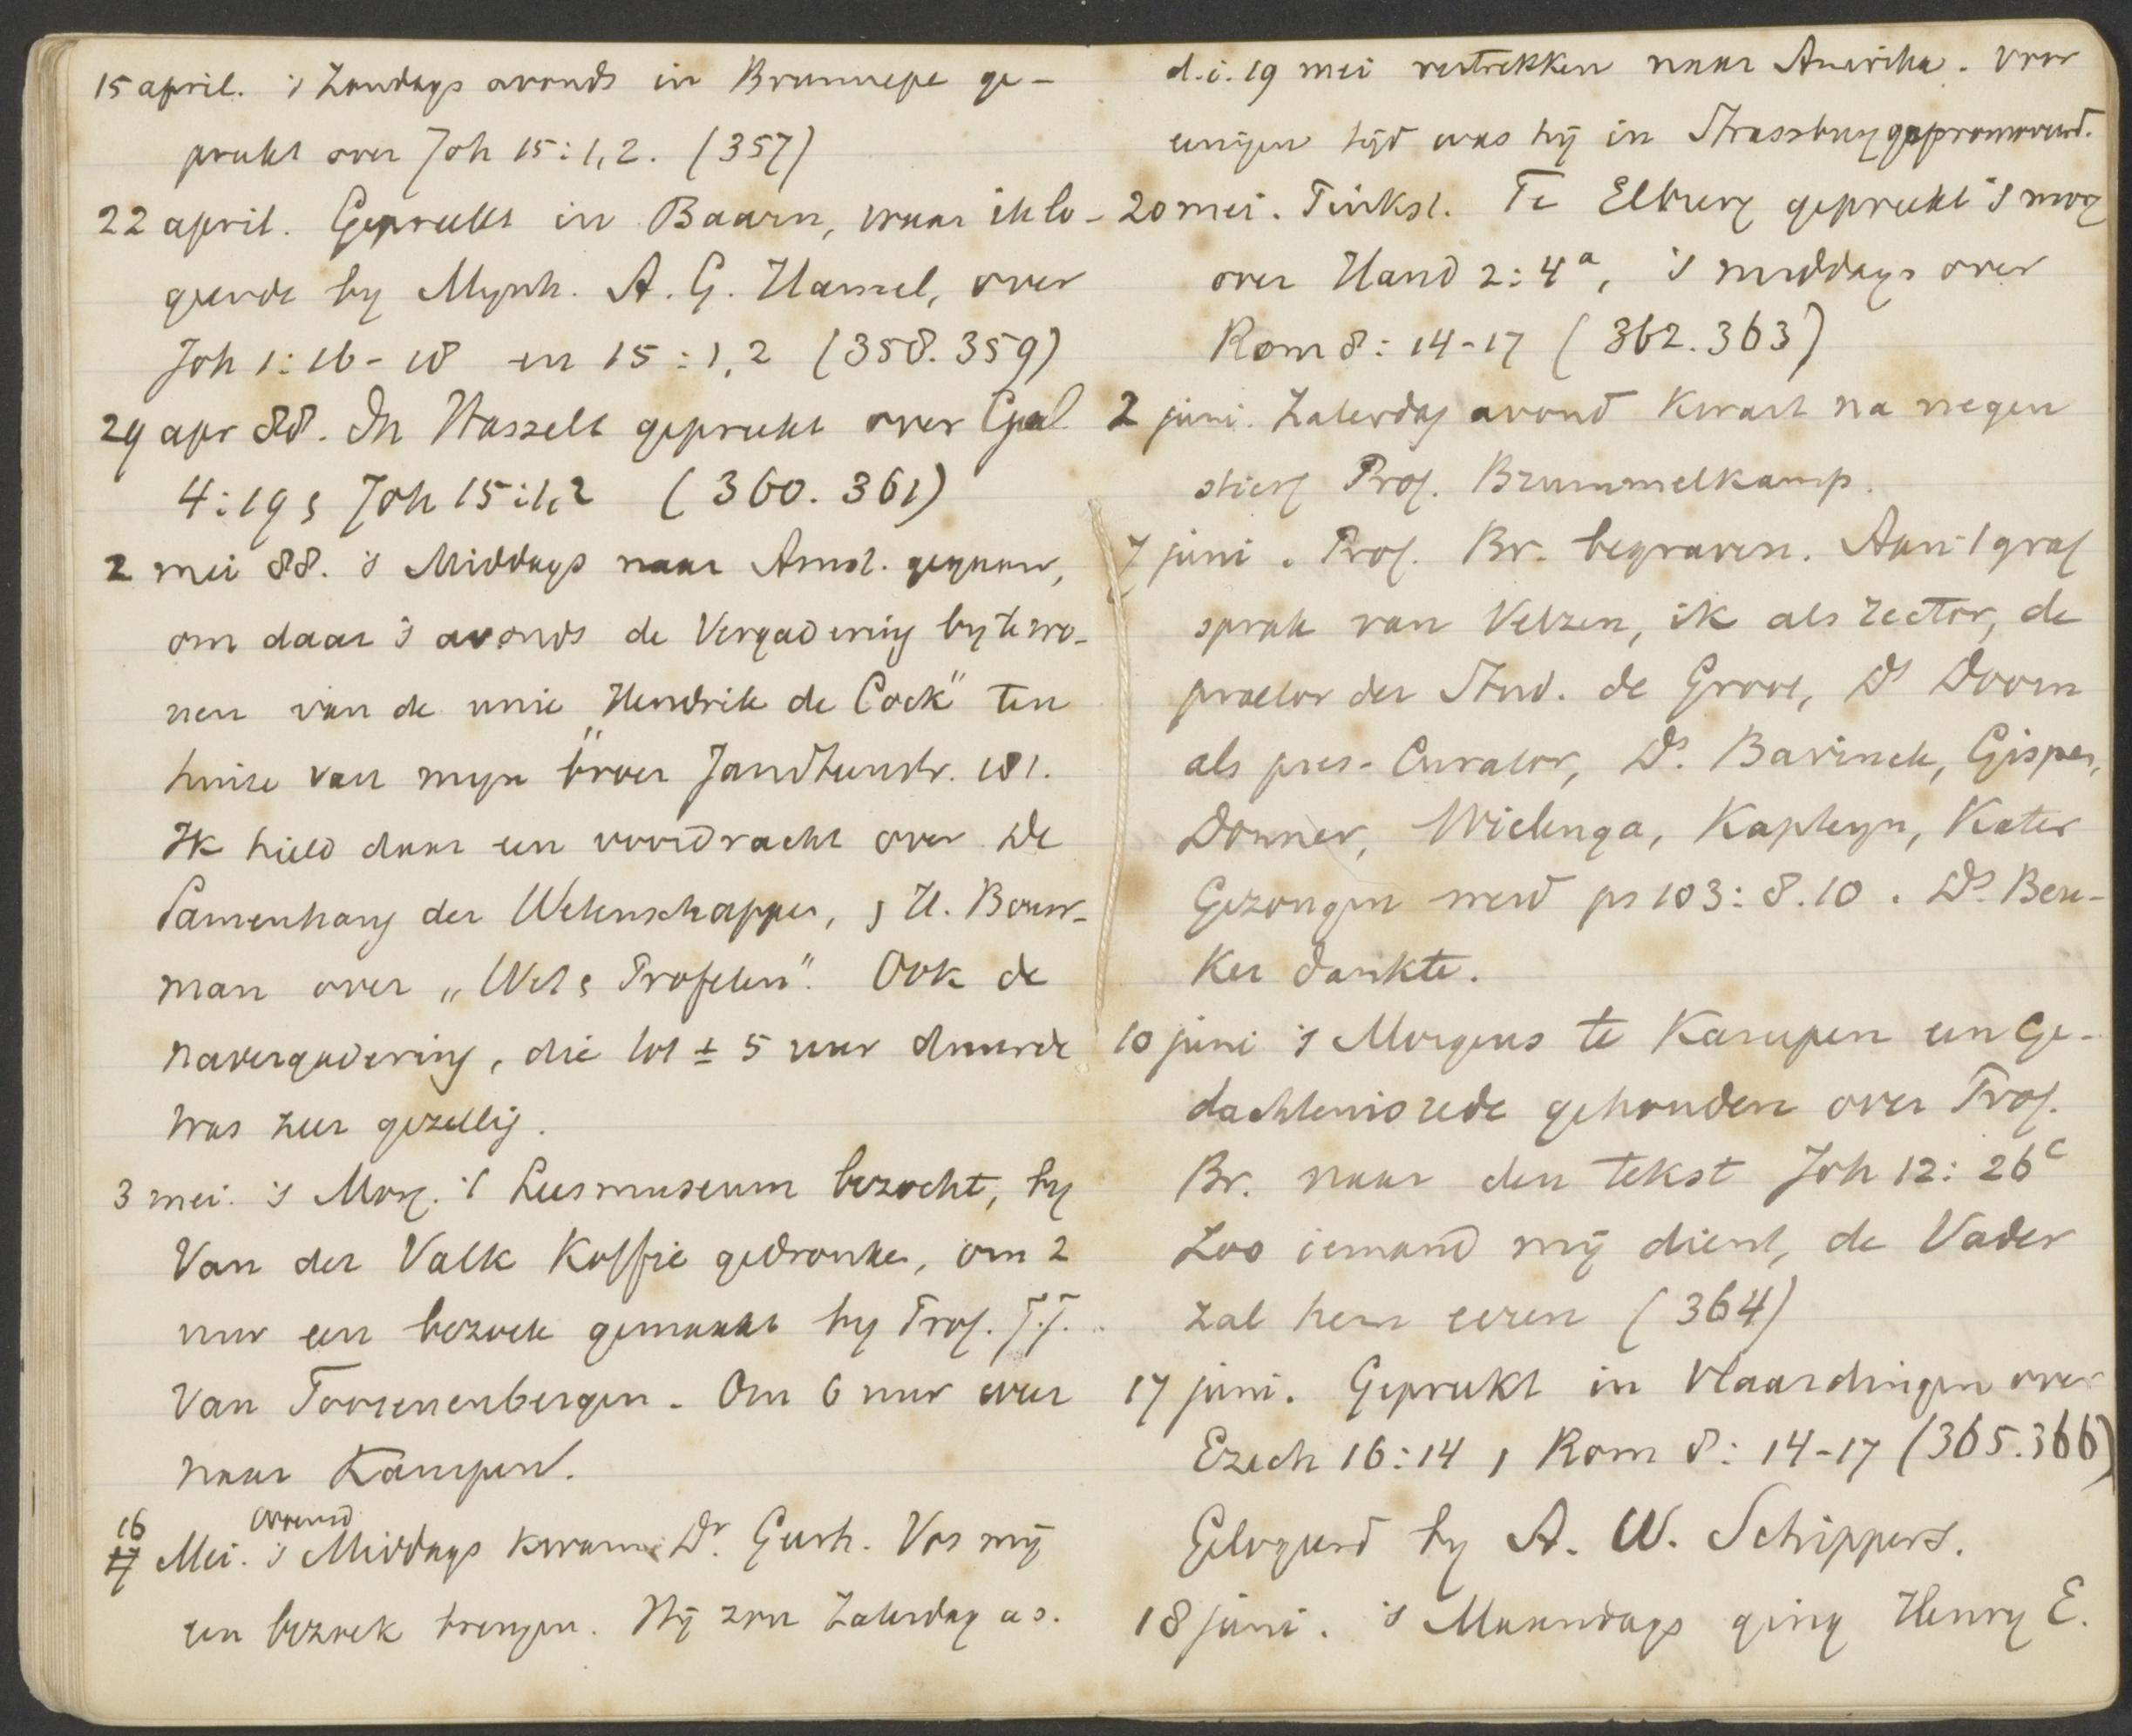 15 april. 's Zondags avonds in Brunnepe ge-
preekt over Joh 15:1,2. (357)
22 april. Gepreekt in Baarn, waar ik lo-
geerde by Mynh. A. G. Hamel, over
Joh 1:16-18 en 15:1,2 (358.359)
29 apr 88. In Hasselt gepreekt over Gal
4:19 & Joh 15:1,2 (360.361)
2 mei 88. 's Middags naar Amst. gegaan,
om daar 's avonds de Vergadering by te wo-
nen van de unie „Hendrik de Cock" ten
huize van myn broer Zandhunstr. 181.
Ik hield daar een voordracht over De
Samenhang der Wetenschappen, & H. Bouw-
man over „Wet & Profeten". Ook de
navergadering, die tot ± 5 uur duurde
was zeer gezellig.
3 mei. 's Morg. 't Leesmuseum bezocht, by
Van der Valk Koffie gedronken, om 2
uur een bezoek gemaakt by Prof. J.J.
Van Toorenenbergen. Om 6 uur weer
naar Kampen.
16 avond
17 Mei. 's Middags kwam Dr. Geerh. Vos mij
een bezoek brengen. Hij zou Zaterdag as.
d.i. 19 mei vertrekken naar Amerika. Voor
eenigen tijd was hij in Strassburg gepromoveerd.
20 mei. Pinkst. Te Elburg gepreekt 's morg
over Hand 2:4a, 's middags over
Rom 8:14-17 (362.363)
2 juni. Zaterdag avond Kwart na negen
stierf Prof. Brummelkamp.
7 juni. Prof. Br. begraven. Aan 't graf
sprak van Velzen, ik als rector, de
praetor der Stud. de Groot, Ds Doorn
als pres-Curator, Ds. Bavinck, Gispen,
Donner, Wielenga, Kapteyn, Kater
Gezongen werd ps 103:8.10. Ds. Beu-
ker dankte.
10 juni 's Morgens te Kampen een Ge-
dachtenisrede gehouden over Prof.
Br. naar den tekst Joh 12:26c
Zoo iemand mij dient, de Vader
zal hem eeren (364)
17 juni. Gepreekt in Vlaardingen over
Ezech 16:14, Rom 8:14-17 (365.366)
Gelogeerd by A. W. Schippers.
18 juni. 's Maandags ging Henry E.